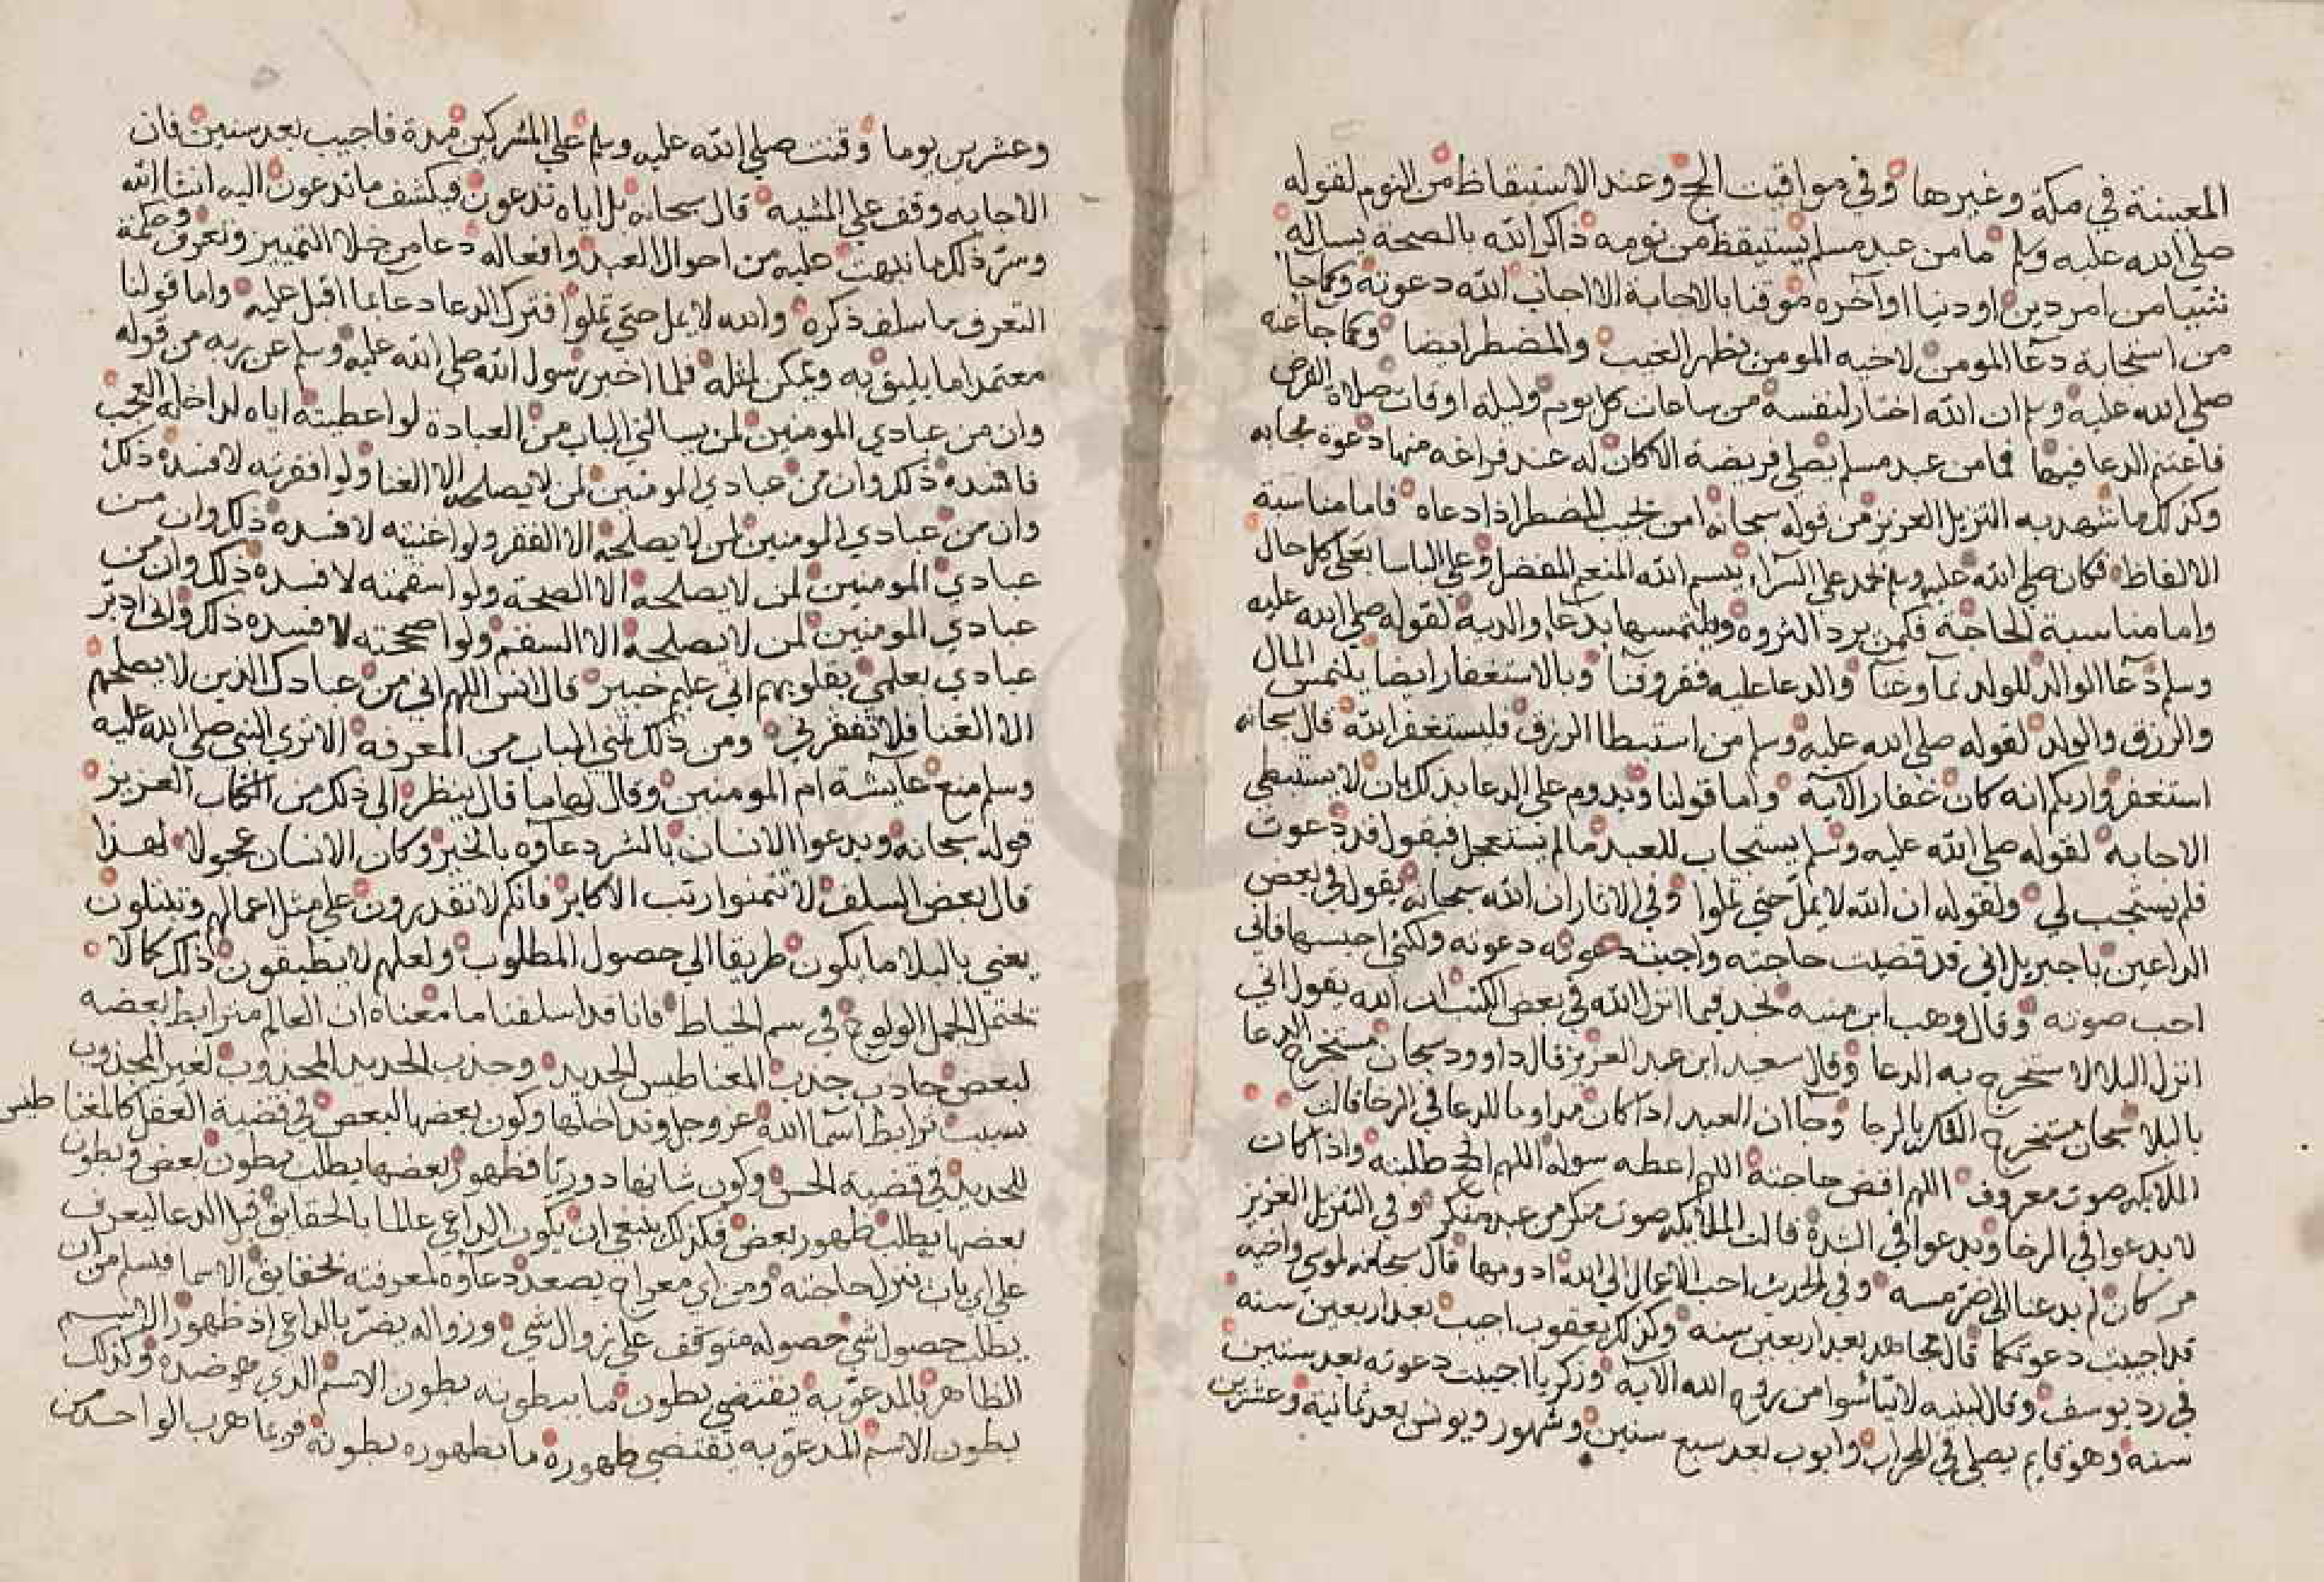 المعينة في مكة وغيرها وفي مواقيت الحج وعند الاستيقاظ من النوم لقوله
صلى الله عليه وسلم ما من عبد مسلم يستيقظ من نومه ذاكر الله بالصحة يساله
شيا من امر دين او دنيا او آخره موقنا بالاجابة الا اجاب الله دعوته وكما جا
من استجابة دعآ المومن لاخيه المومن بظهر الغيب والمضطر ايضا وكما جا عنه
صلى الله عليه وسلم ان الله اختار لنفسه من ساعات كل يوم وليلة اوقات صلاة الفرض
فاغتنم الدعا فيها فما من عبد مسلم يصلي فريضة الا كان له عند فراغه منها دعوة مجابه
وكذلك ما شهد به التنزيل العزيز من قوله سبحانه امن يجيب المضطر اذا دعاه فاما مناسبة
الالفاظ فكان صلى الله عليه وسلم يحمد على السرآء بيسم الله المنعم المفضل وعلى الباسا بعلى كل حال
واما مناسبة الحاجة فكمن يرد الثروه ويلتمسها بدعا والديه لقوله صلى الله عليه
وسلم دعآ الوالد للولد نمآ وغنآ والدعا عليه فقر وفنآ وبالاستغفار ايضا يلتمس المال
والرزق والولد لقوله صلى الله عليه وسلم من استبطا الرزق فليستغفر الله قال سبحانه
استغفروا ربكم انه كان غفارا الآية واما قولنا ويدوم على الدعا بذلك بان لا يستبطي
الاجابه لقوله صلى الله عليه وسلم يستجاب للعبد ما لم يستعجل فيقول قد دعوت
فلم يستجب لي ولقوله ان الله لا يمل حتى تملوا وفي الاثار ان الله سبحانه يقول في بعض
الداعين يا جبريل اني قد قضيت حاجته واجبت دعوته ولكني احبسها فاني
احب صوته وقال وهب ابن منبه نجد فيما انزل الله في بعض الكتب ان الله يقول اني
انزل البلا لاستخرج به الدعا وقال سعيد ابن عبد العزيز قال داوود سبحان مستخرج الدعا
بالبلا سبحان مستخرج الشكر بالرخا وجا ان العبد اذا كان مداوما للدعا في الرخا قالت
الملايكه صوت معروف اللهم اقض حاجته اللهم اعطه سوله اللهم انجح طلبته واذا كان
لا يدعوا في الرخا ويدعوا في الشدة قالت الملايكه صوت منكر من عبد منكر وفي التنزيل العزيز
مر كان لم يدعنا الى ضر مسه وفي الحديث احب الاعمال الى الله ادومها قال سبحانه لموسى واخيه
قد اجيبت دعوتكما قال مجاهد بعد اربعين سنه وكذلك يعقوب اجيب بعد اربعين سنه
في رد يوسف وقال لبنيه لا تيأسوا من روح الله الآية وزكريا اجيبت دعوته بعد سنتين
سنه وهو قايم يصلي في المحراب وايوب بعد سبع سنين وشهور ويونس بعد ثمانية وعشرين
وعشرين يوما وقنت صلى الله عليه وسلم على المشركين مدة فاجيب بعد سنين فان
الاجابه وقف على المشيه قال سبحانه بل اياه تدعون فيكشف ما تدعون اليه ان شا الله
وسر ذلك ما نبهت عليه من احوال العبد وافعاله دعا من خلا التمييز وتعرف وحكمة
التعرف ما سلف ذكره والله لا يمل حتى تملوا فترك الدعا دعا بما اقبل عليه واما قولنا
معتمدا ما يليق به ويمكن لمثله فلما اخبر رسول الله صلى الله عليه وسلم عن ربه من قوله
وان من عبادي المومنين لمن يسالني الباب من العبادة لو اعطيته اياه لداخله العجب
فافسده ذلك وان من عبادي المومنين لمن لا يصلحه الا الغنا ولو افقرته لافسده ذلك
وان من عبادي المومنين لمن لا يصلحه الا الفقر ولو اغنيته لافسده ذلك وان من
عبادي المومنين لمن لا يصلحه الا الصحة ولو اسقمته لافسده ذلك وان من
عبادي المومنين لمن لا يصلحه الا السقم ولو اصححته لافسده ذلك واني ادبر
عبادي بعلمي بقلوبهم اني عليم خبير قال انس اللهم اني من عبادك الذين لا يصلحهم
الا الغنا فلا تفقرني ومن ذلك تمني الباب من المعرفه الا ترى النبي صلى الله عليه
وسلم منع عايشة ام المومنين وقال لها ما قال ينظر الى ذلك من الكتاب العزيز
قوله سبحانه ويدعوا الانسان بالشر دعآوه بالخير وكان الانسان عجولا لهذا
قال بعض السلف لا تتمنوا رتب الاكابر فانكم لا تقدرون على مثل اعمالهم وتبتلون
يعني بالبلا ما يكون طريقا الى حصول المطلوب ولعلهم لا يطيقون ذلك كما لا
يحتمل الجمل الولوج في سم الخياط فانا قد اسلفنا ما معناه ان العالم مترابط بعضه
لبعض جاذب جذب المغناطيس الحديد وجذب الحديد المجذوب لغير المجذوب
بسبب ترابط اسمآ الله عز وجل وتداخلها وكون بعضها لبعض في قضية العقل كالمغناطيس
للحديد في قضية الحس وكون شانها دوريا فظهور بعضها يطلب بطون بعض وبطون
بعضها يطلب ظهور بعض فكذلك ينبغي ان يكون الداعي عالما بالحقايق قبل الدعا ليعرف
على اي باب تنزل حاجته ومن اي معراج يصعد دعاوه لمعرفته بحقايق الاسما فيسلم من ان
يطلب حصول شي حصوله متوقف على زوال شي وزواله يضر بالداعي اذ ظهور الاسم
الظاهر بالمدعو به يقتضي بطون ما ببطونه بطون الاسم الذي هو ضده وكذلك
بطون الاسم المدعو به يقتضي ظهوره ما بظهوره بطونه فربما هرب الواحد من